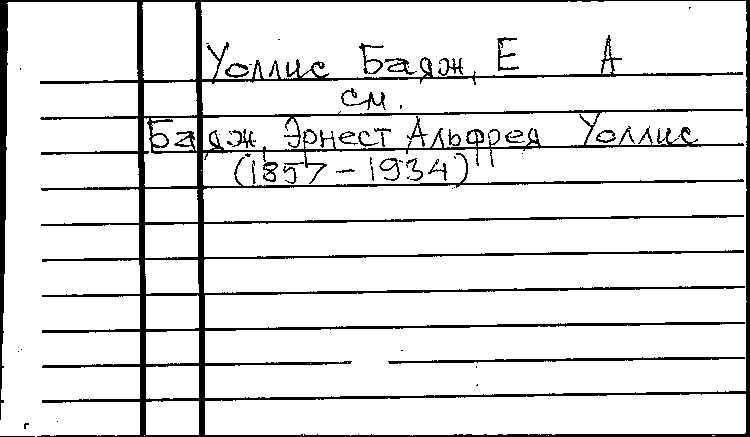 Уоллис Бадж, Е А
см.
Бадж, Эрнест Альфред Уоллис
(1857 - 1934)